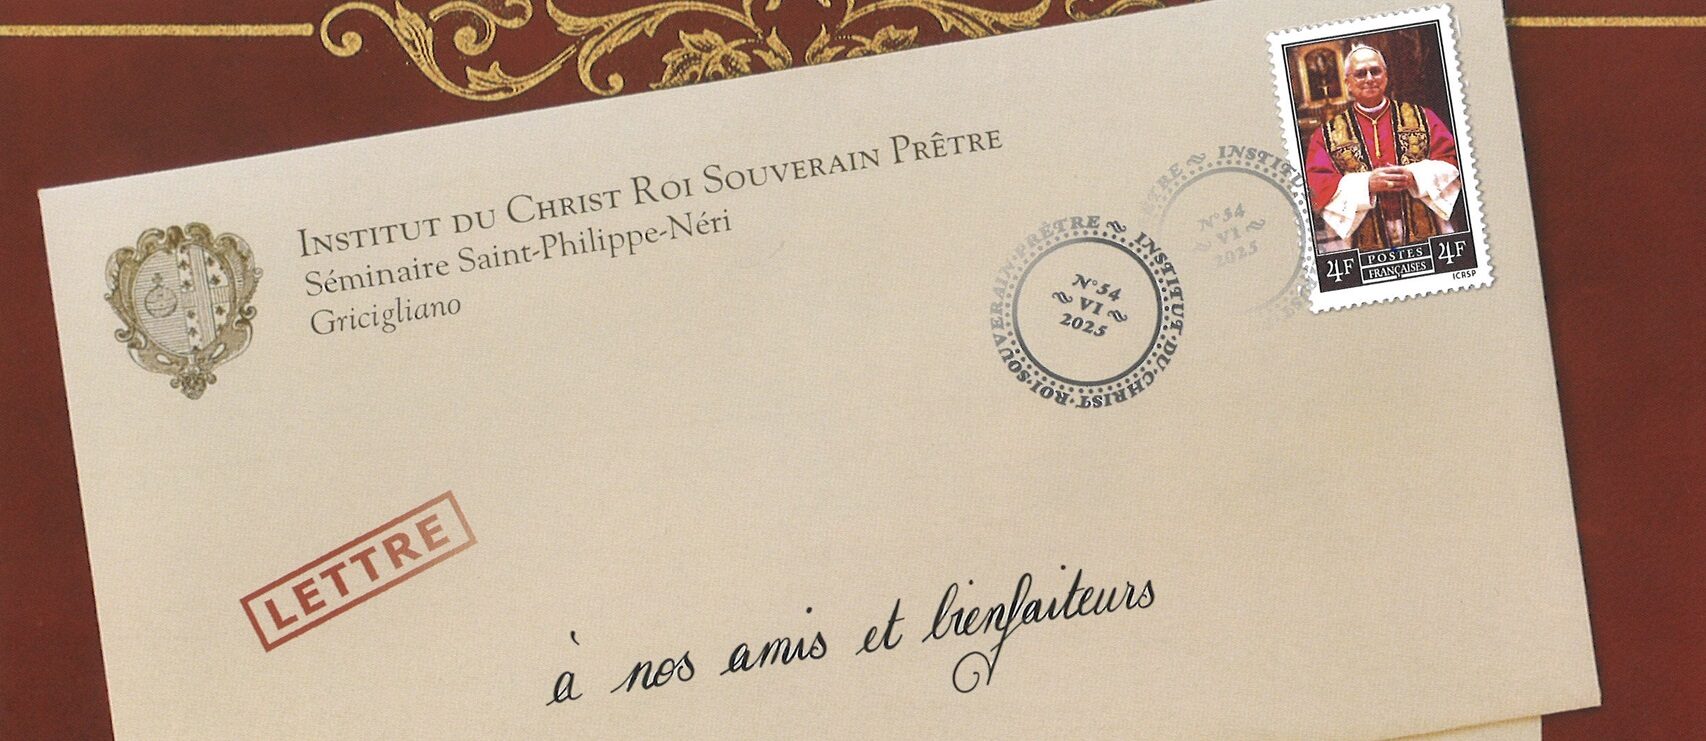 Institut du Christ Roi Souverain Prêtre
Séminaire Saint-Philippe-Néri
Gricigliano
INSTITUT·DU·CHRIST·ROI·SOUVERAIN·PRÊTRE
N°54
VI
2025
ÊTRE ~ INSTITU
N°54
VI
2025
4F
POSTES
FRANÇAISES
4F
ICRSP
LETTRE
à nos amis et bienfaiteurs